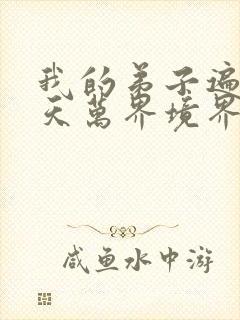 我的弟子遍
天萬界境界
咸鱼水中游